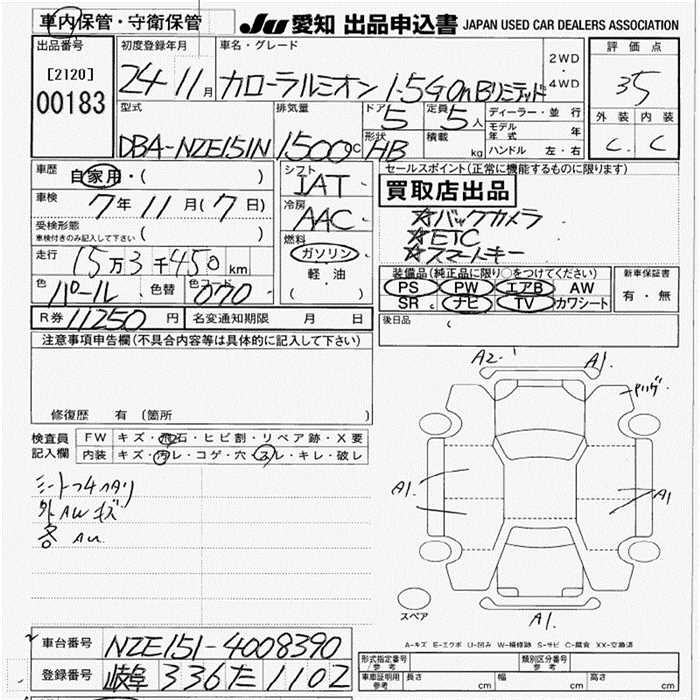 車内保管・守衛保管
JU 愛知 出品申込書 JAPAN USED CAR DEALERS ASSOCIATION
出品番号 [2120] 00183
初度登録年月 24 11月
車名・グレード カローラルミオン 1.5G OnBリミテッド
2WD・4WD
評価点 35
外装 内装
C. C
型式 DBA-NZE151N
排気量 1500cc
ドア 5
定員 5人
形状 HB
積載 kg
ディーラー・並行
モデル年式 年
ハンドル 左・右
車歴 自家用・( )
車検 7年11月(7日)
受検形態 車検付きのみ記入して下さい ( )
走行 15万3千450km
色 パール 色替 色コード 070
シフト IAT
冷房 AAC
燃料 ガソリン・軽油 ( )
セールスポイント(正常に機能するものに限ります)
買取店出品
☆バックカメラ
☆ETC
☆スマートキー
装備品(純正品に限り○をつけてください)
PS PW エアB AW
SR ナビ TV カワシート
新車保証書 有・無
R券 11250円 名変通知期限 月 日
後日品
注意事項申告欄(不具合内容等は具体的に記入して下さい)
修復歴 有 (箇所 )
検査員記入欄
FW キズ・飛石・ヒビ割・リペア跡・X要
内装 キズ・汚レ・コゲ・穴・スレ・キレ・破レ
外AWキズ
A2 A1
A1 A1
A1
スペア
A-キズ E-エクボ U-凹み W-補修跡 S-サビ C-腐食 XX-交換済
車台番号 NZE151-4008390
登録番号 岐阜 336 た 1102
形式指定番号/参考 類別区分番号/参考
車庫証明用参考 長さ cm 幅 cm 高さ cm